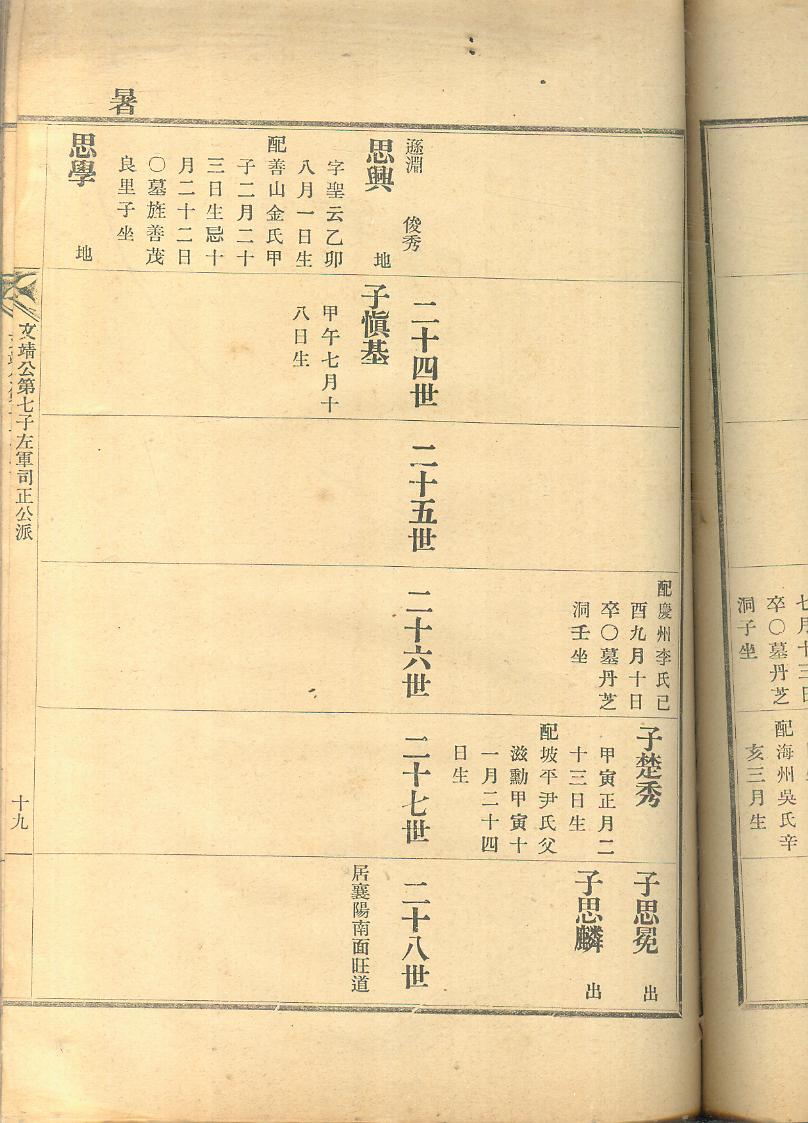 七月十三日
卒〇墓丹芝
洞子坐
配海州吳氏辛
亥三月生
配慶州李氏己
酉九月十日
卒〇墓丹芝
洞壬坐
子楚秀
甲寅正月二
十三日生
配坡平尹氏父
滋勳甲寅十
一月二十四
日生
子思冕 出
子思麟 出
遜淵 俊秀
二十四世
二十五世
二十六世
二十七世
二十八世
思興 地
字聖云乙卯
八月一日生
配善山金氏甲
子二月二十
三日生忌十
月二十二日
〇墓旌善茂
良里子坐
子愼基
甲午七月十
八日生
居襄陽南面旺道
暑
思學 地
文靖公第七子左軍司正公派
十九